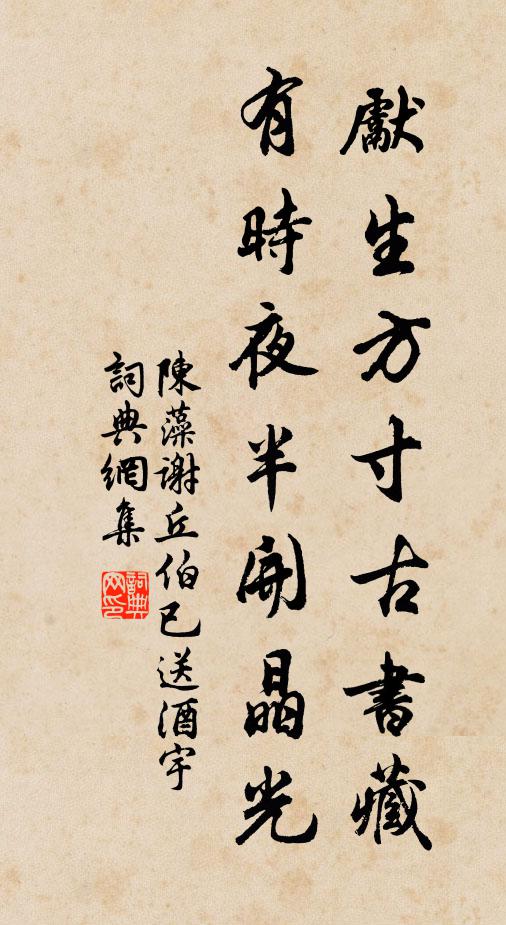 獻生方寸古書藏
有時夜半開晶光
陳藻謝丘伯已送酒宇
詞典網集
詞典网印